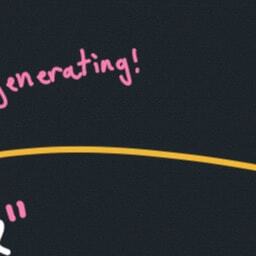 generating!
"